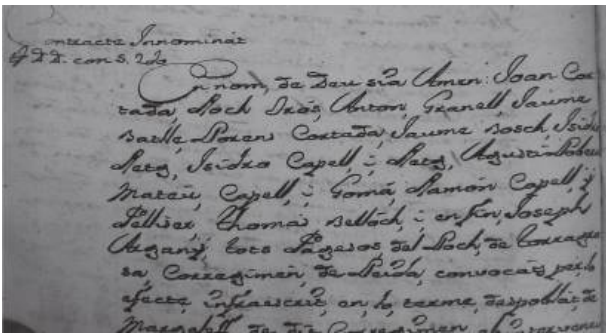 Contracte Innominat
En nom, de Deu sia Amen: Joan Cor
tada, Roch Oròs, Anton, Granell, Jaume
Batlle Loren Cortada, Jaume Bosch, Isidro
Reig, Isidro Capell, i Reig, Agusti
Mateu, Capell, i Gomá, Ramon Capell, y
Pellicer, Thomas Belloch, i en fin, Joseph
Argany, tots Pagesos del Loch, de Torregro
sa, Corregimen, de Leida, convocats per lo
efecte infraescrit, en, lo terme, despoblat, de
Margalell, de dit Corregimen